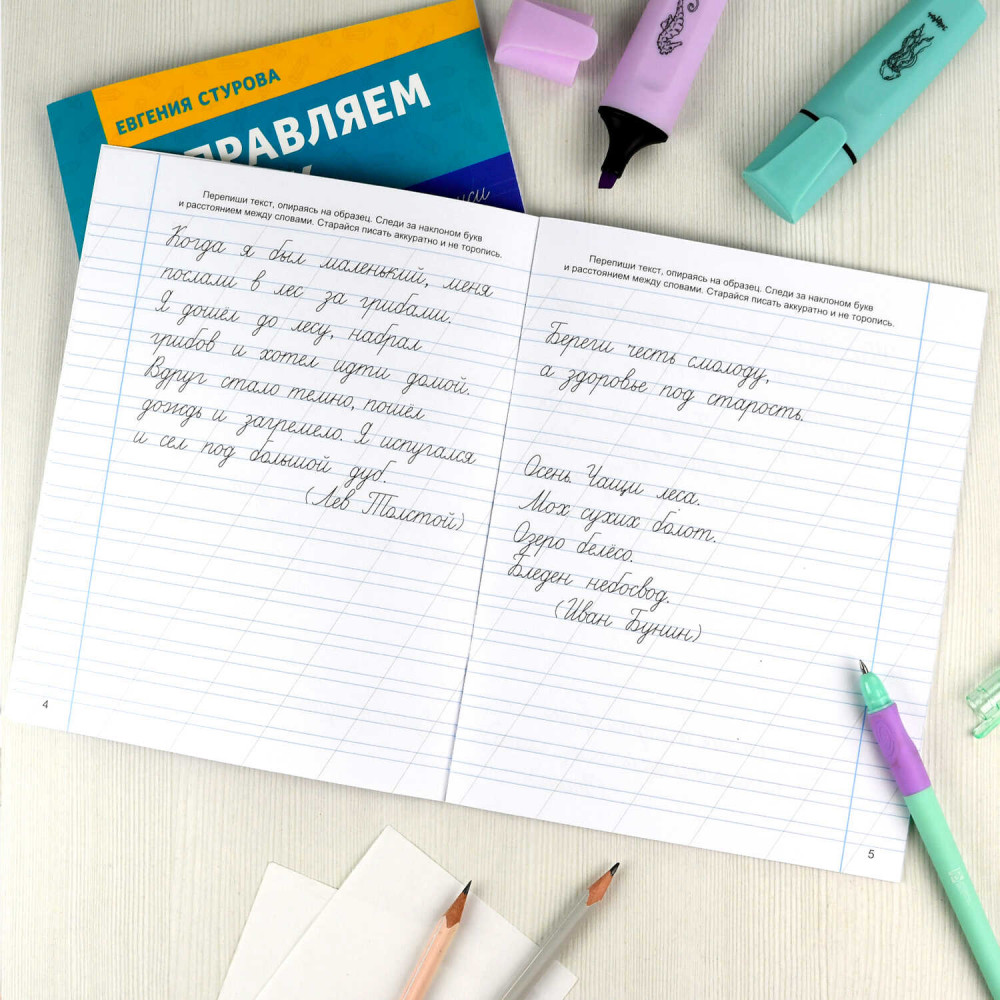 ЕВГЕНИЯ СТУРОВА
Перепиши текст, опираясь на образец. Следи за наклоном букв
и расстоянием между словами. Старайся писать аккуратно и не торопись.
Когда я был маленький, меня
послали в лес за грибами.
Я дошёл до лесу, набрал
грибов и хотел идти домой.
Вдруг стало темно, пошёл
дождь и загремело. Я испугался
и сел под большой дуб.
(Лев Толстой)
4
Перепиши текст, опираясь на образец. Следи за наклоном букв
и расстоянием между словами. Старайся писать аккуратно и не торопись.
Береги честь смолоду,
а здоровье под старость.
Осень. Чащи леса.
Мох сухих болот.
Озеро белёсо.
Бледен небосвод.
(Иван Бунин)
5